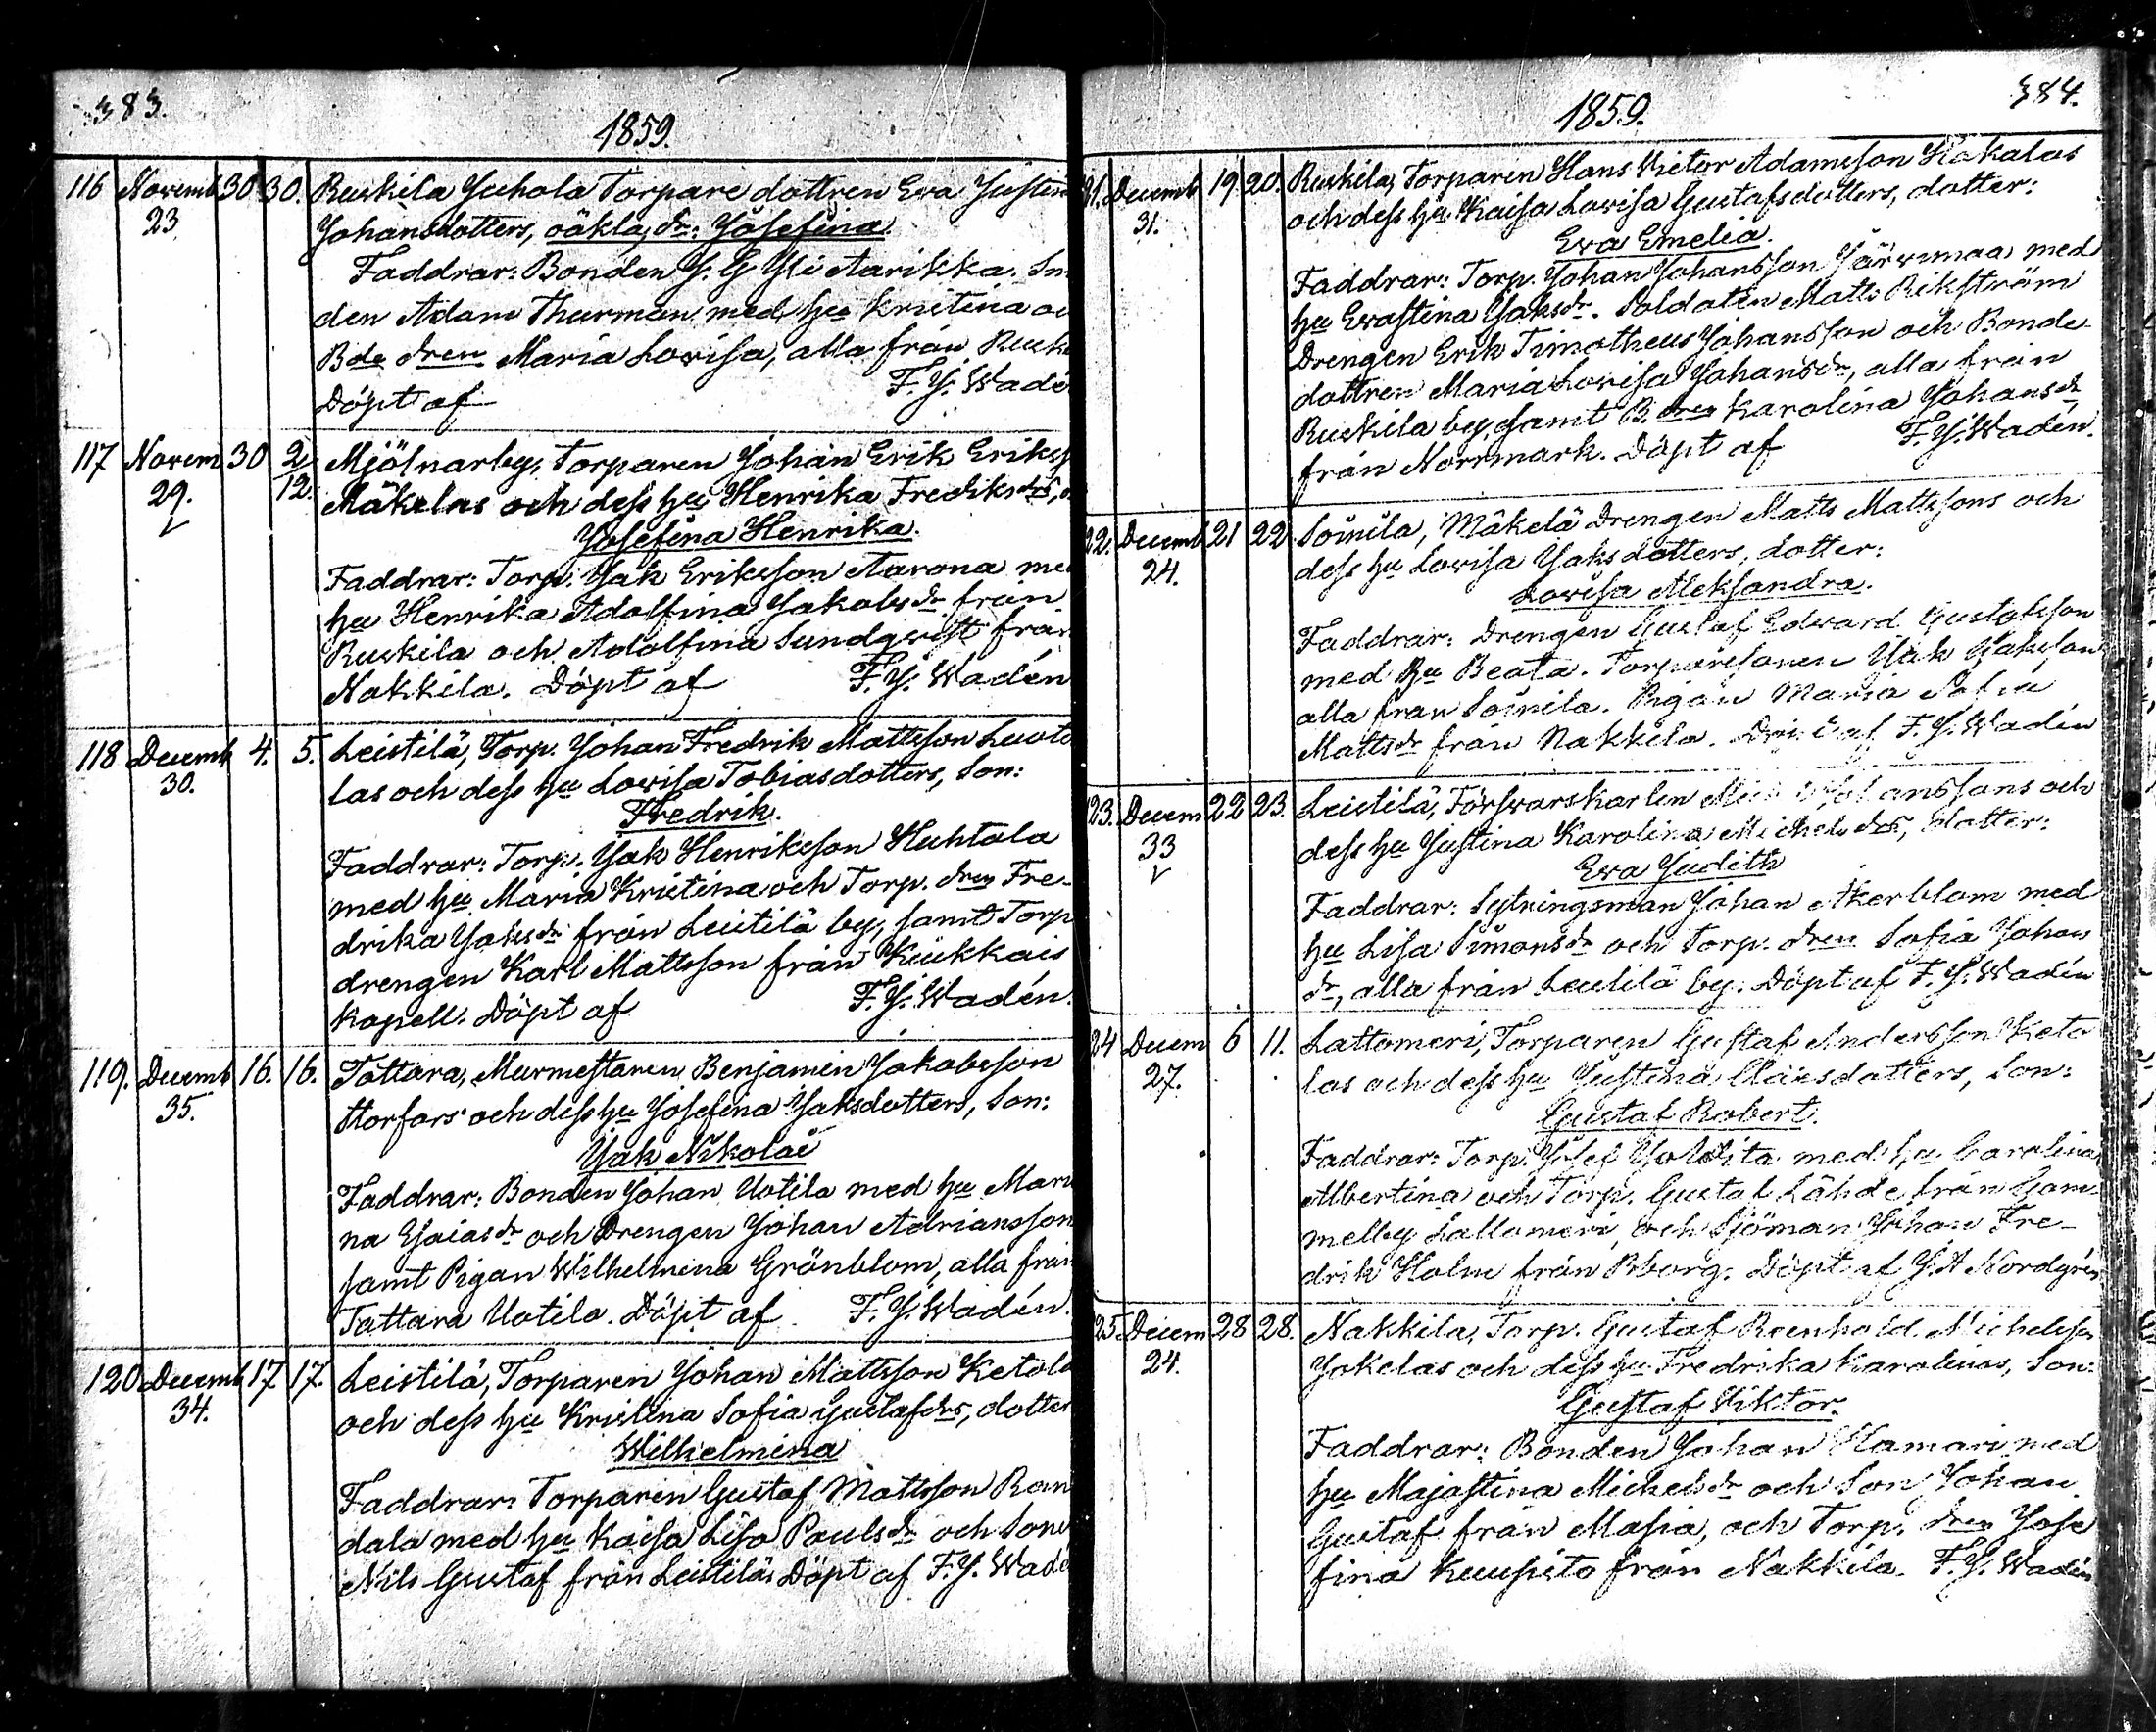 383.
1859.
116 Novemb 30 30. Ruskila Juhola Torpare dottren Eva Justen
23 Johansdotters, oäkta dr: Josefina
Faddrar: Bonden J. G. Yli Aarikka. Sm
den Adam Thurman med hu Kristina oc
Bde dren Maria Lovisa, alla från Rusk
Döpt af F. J. Wadé
117 Novem 30 2/12. Mjölnarby, Torparen Johan Erik Eriks
29. Mäkelas och dess hu Henrika Frediksdrs, d
Josefina Henrika.
Faddrar: Torp. Jak Eriksson Aarona me
hu Henrika Adolfina Jakobsdr från
Ruskila och Adolfina Sundqvist från
Nakkila. Döpt af F. J. Wadén
118 Decemb 4. 5. Leistilä, Torp. Johan Fredrik Mattsson Luoto
30. las och dess hu Lovisa Tobiasdotters, Son:
Fredrik.
Faddrar: Torp. Jak Henriksson Huhtala
med hu Maria Kristina och Torp. dren Fre-
drika Jaksdr från Leistilä by, samt Torp
drengen Karl Mattsson från Kiukkais
kapell. Döpt af F. J. Wadén.
119. Decemb 16. 16. Tattara, Murmestaren Benjamin Jakobsson
35. Storfors och dess hu Josefina Jaksdotters, Son:
Jak Nikolai
Faddrar: Bonden Johan Uotila med hu Mari
na Esaiasdr och Drengen Johan Adriansson
samt Pigan Wilhelmina Grönblom, alla från
Tattara Uotila. Döpt af F. J. Wadén.
120. Decemb 17 17. Leistilä, Torparen Johan Mattsson Ketola
34. och dess hu Kristina Sofia Gustafsdrs, dotter
Wilhelmina
Faddrar: Torparen Gustaf Mattsson Ran
dala med hu Kaisa Lisa Paulsdr och Sone
Nils Gustaf från Leistilä. Döpt af F. J. Wadé
384.
1859.
21. Decemb 19. 20. Ruskila, Torparen Hans Victor Adamsson Kokalas
31. och dess hu Kaisa Lovisa Gustafsdotters, dotter:
Eva Emelia.
Faddrar: Torp. Johan Johansson Järvimaa med
hu Evastina Jaksdr. Soldaten Matts Rikström
Drengen Erik Timotheus Johansson och Bonde-
dottren Maria Lovisa Johansdr, alla från
Ruskila by, samt B. dren Karolina Johansdr
från Norrmark. Döpt af F. J. Wadén.
22. Decemb 21 22. Soinila, Mäkelä Drengen Matts Mattssons och
24. dess hu Lovisa Jaksdotters, dotter:
Lovisa Aleksandra.
Faddrar: Drengen Gustaf Edvard Gustafsson
med hu Beata. Torparesonen Jak Jaksson
alla från Soinila. Pigan Maria Sofia
Mattsdr från Nakkila. Döpt af F. J. Wadén
23. Decem 22 23. Leistilä, Försvarskarlen Johanssons och
33 dess hu Justina Karolina Michelsdrs, dotter:
Eva Judith
Faddrar: Sytningsman Johan Åkerblom med
hu Lisa Simonsdr och Torp. dren Sofia Johans
dr, alla från Leistilä by. Döpt af F. J. Wadén
24 Decem 6 11. Lattomeri, Torparen Gustaf Andersson Keto
27. las och dess hu Justina Claesdotters, Son:
Gustaf Robert.
Faddrar: Torp. Josef med hu Carolina
Albertina och Torp. Gustaf Lähde från Gam-
melby Lattomeri, och Sjöman Johan Fre-
drik Holm från Bborg. Döpt af J. A Nordgrén
25. Decem 28 28. Nakkila, Torp. Gustaf Reenhold Michelsson
24. Jokelas och dess hu Fredrika Karolinas, Son:
Gustaf Viktor.
Faddrar: Bonden Johan Hamari med
hu Majastina Michelsdr och Son Johan
Gustaf från Masia, och Torp. dren Jose
fina Kuusisto från Nakkila. F. J. Wadén